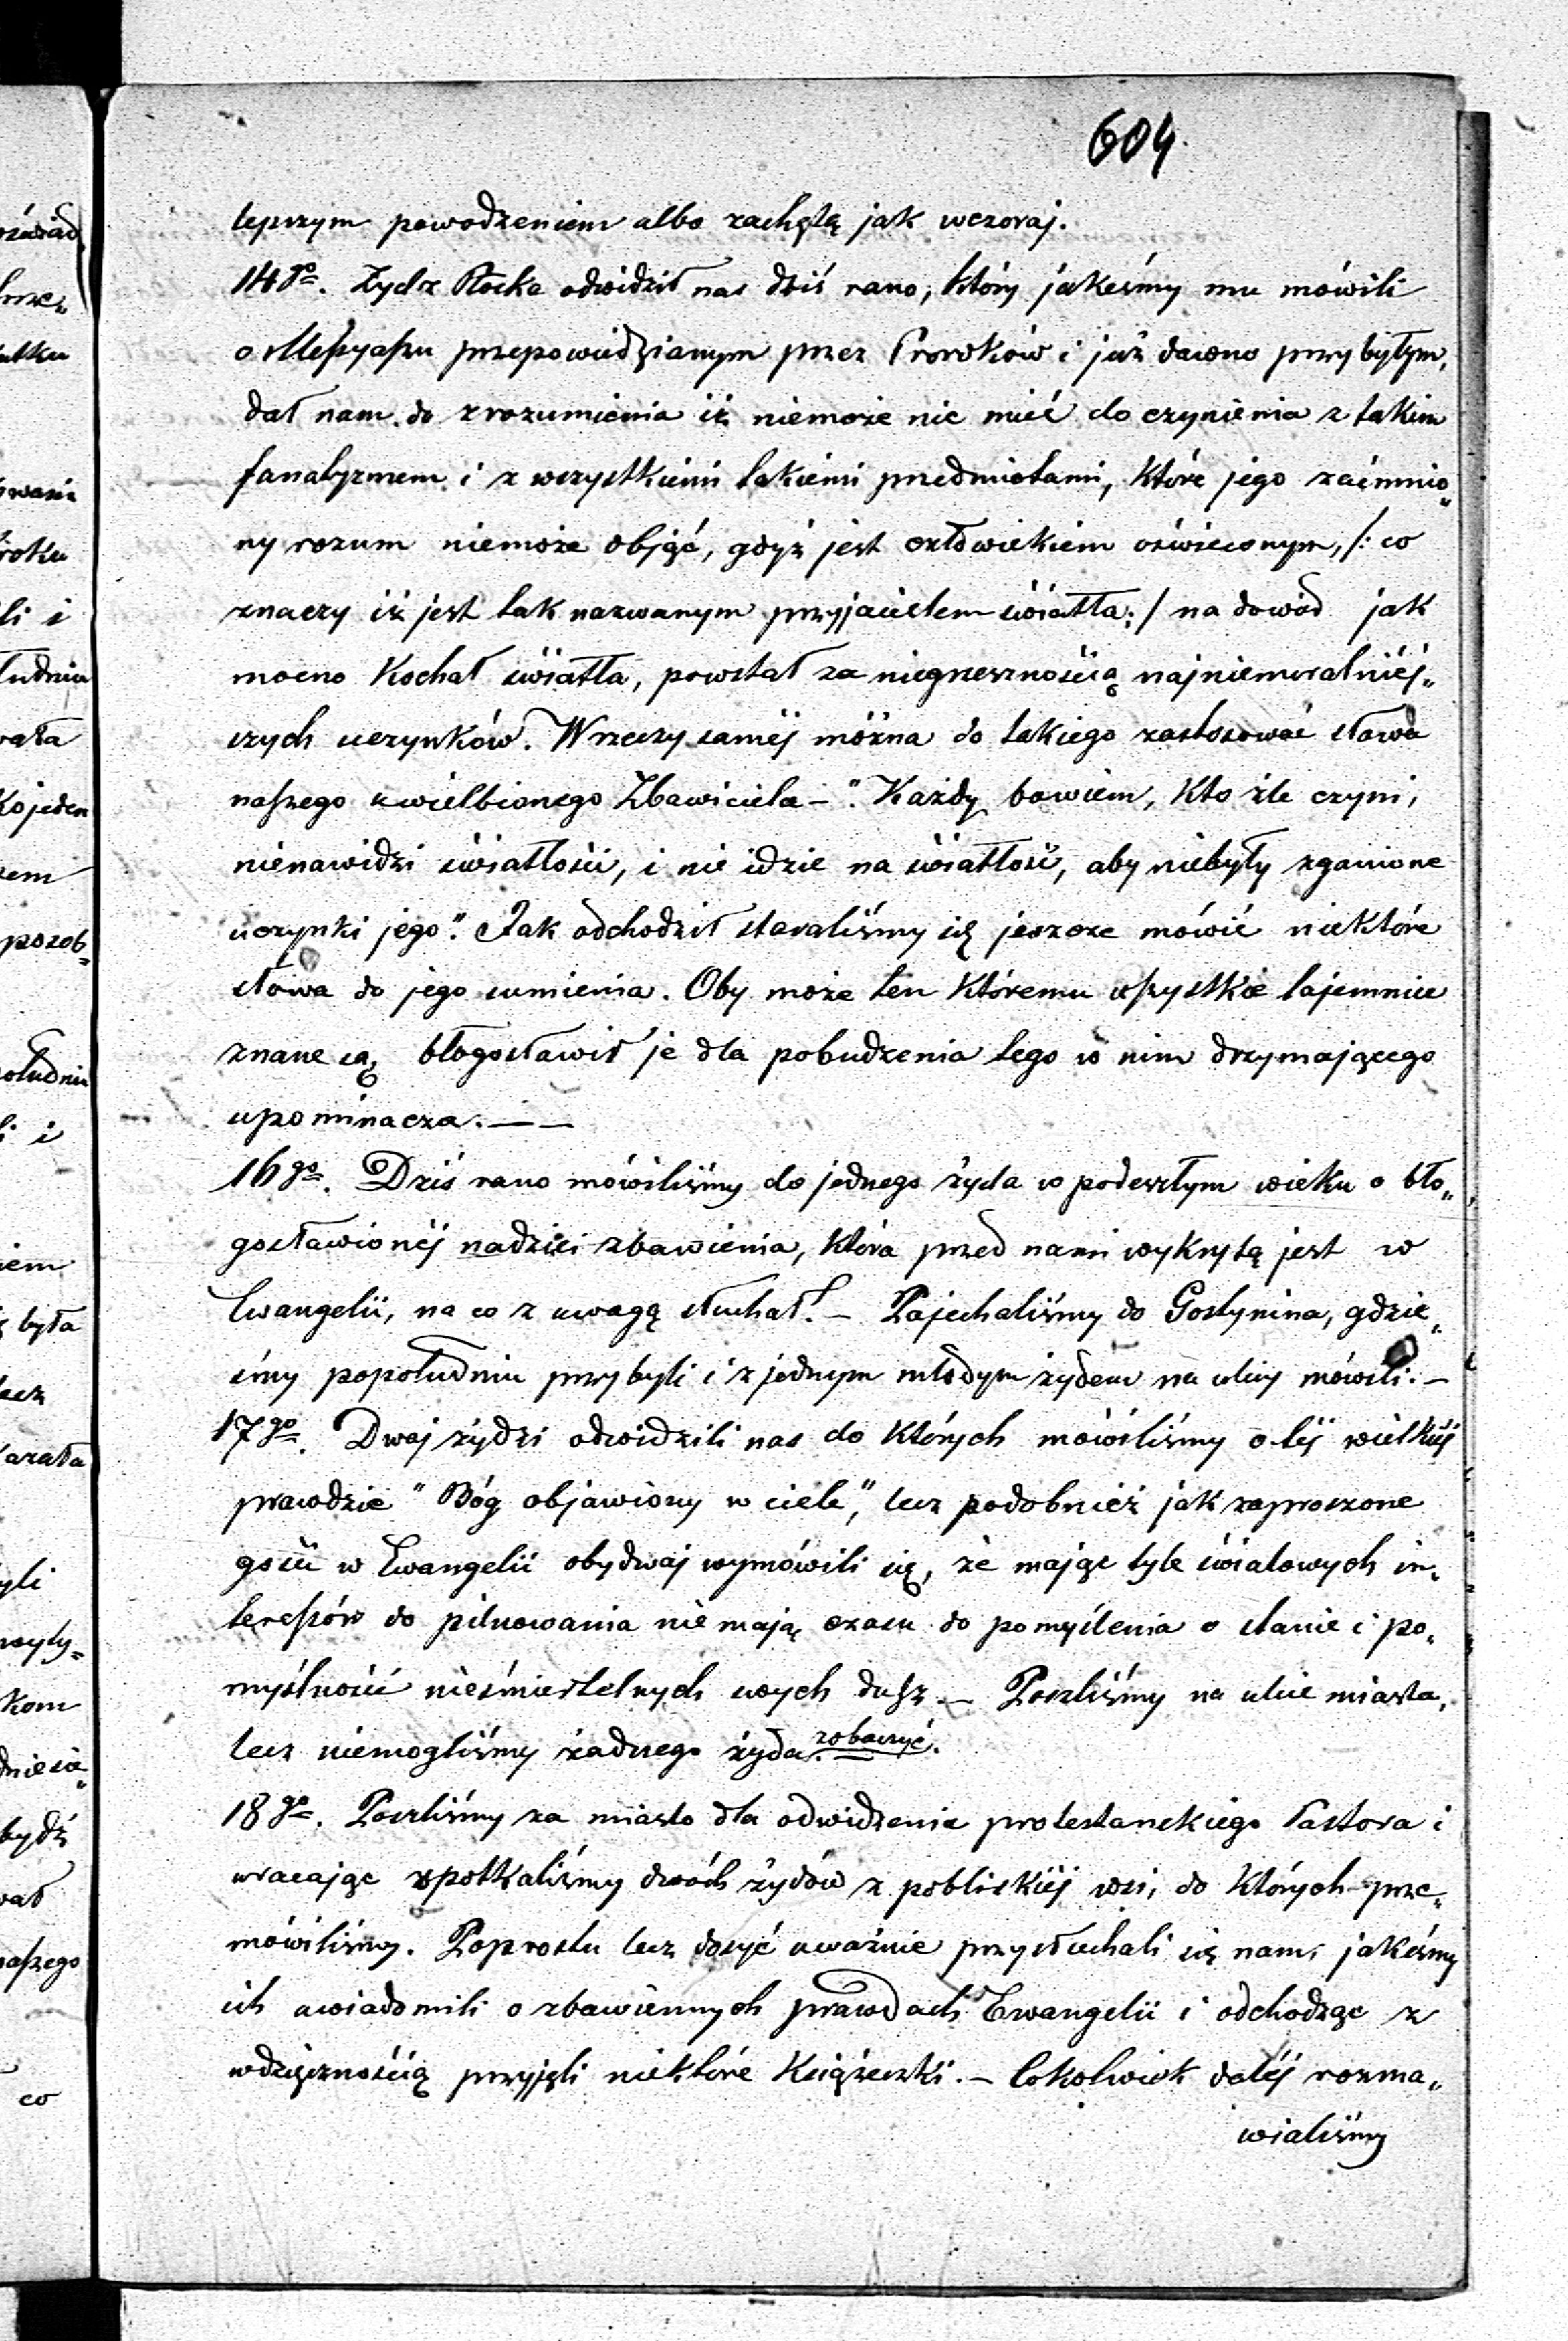 604.
lepszym powodzeniem albo zachętą jak wczoraj.
14go. Żyd z Płocka odwidził nas dziś rano, który jakeśmy mu mówili
o Messyaszu przepowiedzianym przez Proroków i już dawno przybyłym,
dał nam do zrozumienia iż niemoże nic mieć do czynienia z takim
fanatyzmem i z wszystkiemi takiemi przedmiotami, które jego zaćmnio„
ny rozum niemoże objąć, gdyż jest człowiekiem oświeconym, /: co
znaczy iż jest tak nazwanym przyjacielem światła; / na dowód jak
mocno kochał światła, powstał za niegrzesznością najniemoralniéj„
szych uczynków. W rzeczy saméj można do takiego zastosować słowa
naszego uwielbionego Zbawiciela – "Każdy bowiem, kto źle czyni,
nienawidzi światłości, i nie idzie na światłość, aby niebyły zganione
uczynki jego". Jak odchodził staraliśmy się jeszcze mówić niektóre
słowa do jego sumienia. Oby może ten któremu wszystkie tajemnice
znane są, błogosławił je dla pobudzenia tego w nim drzymającego
upominacza. — —
16go. Dziś rano mówiliśmy do jednego żyda w podeszłym wieku o bło„
gosławionéj nadziei zbawienia, która przed nami wykrytą jest w
Ewangelii, na co z uwagą słuchał. – Pojechaliśmy do Gostynina, gdzie„
śmy popołudniu przybyli i z jednym młodym żydem na ulicy mówili. –
17go. Dwaj żydzi odwidzili nas do których mówiliśmy o téj wielkiéj
prawdzie "Bóg objawiony w ciele", lecz podobnież jak zaproszone
goście w Ewangelii obydwaj wymówili się, że mając tyle światowych in„
teressów do pilnowania nie mają czasu do pomyślenia o stanie i po„
myślności nieśmiertelnych swych dusz. – Poszliśmy na ulice miasta,
lecz niemogliśmy żadnego żyda zobaczyć.
18go. Poszliśmy za miasto dla odwidzenia protestanckiego Pastora i
wracając spotkaliśmy dwóch żydów z pobliskiéj wsi, do których prze„
mówiliśmy. Poprostu lecz dosyć uważnie przysłuchali się nam, jakeśmy
ich uwiadomili o zbawiennych prawdach Ewangelii i odchodząc z
wdzięcznością przyjęli niektóre książeczki. – Cokolwiek daléj rozma„
wialiśmy